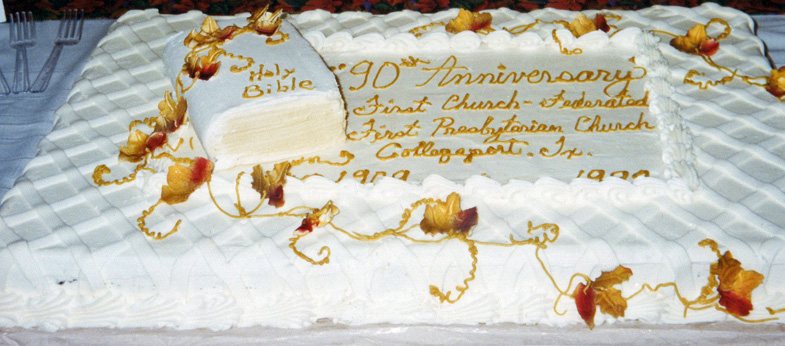 Holy
Bible
"90th Anniversary"
First Church - Federated
First Presbyterian Church
Collegeport, Tx.
1909 1999